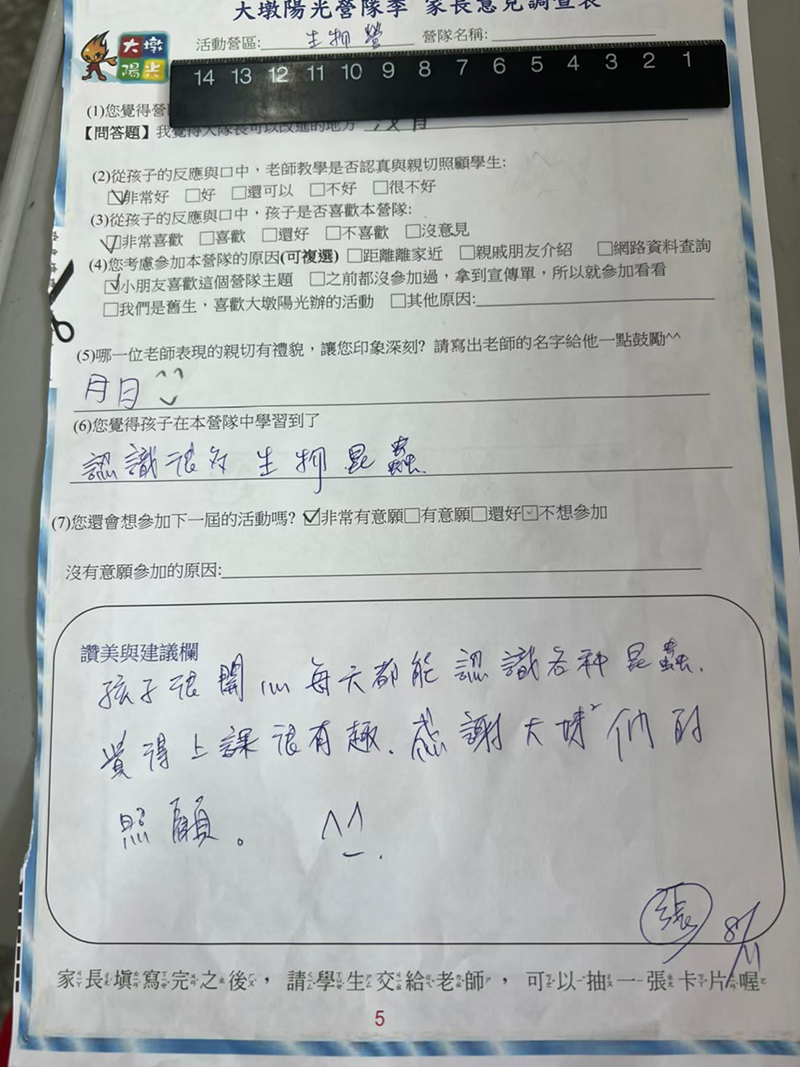 大墩陽光營隊季 家長意見調查表
大墩
陽光
活動營區: 生物營 營隊名稱:
14 13 12 11 10 9 8 7 6 5 4 3 2 1
(1)您覺得營
【問答題】我覺得大隊長可以改進的地方 沒有
(2)從孩子的反應與口中，老師教學是否認真與親切照顧學生:
☑非常好 □好 □還可以 □不好 □很不好
(3)從孩子的反應與口中，孩子是否喜歡本營隊:
☑非常喜歡 □喜歡 □還好 □不喜歡 □沒意見
(4)您考慮參加本營隊的原因(可複選) □距離離家近 □親戚朋友介紹 □網路資料查詢
☑小朋友喜歡這個營隊主題 □之前都沒參加過，拿到宣傳單，所以就參加看看
□我們是舊生，喜歡大墩陽光辦的活動 □其他原因:
(5)哪一位老師表現的親切有禮貌，讓您印象深刻? 請寫出老師的名字給他一點鼓勵^^
月日
(6)您覺得孩子在本營隊中學習到了
認識很多生物昆蟲.
(7)您還會想參加下一屆的活動嗎? ☑非常有意願□有意願□還好□不想參加
沒有意願參加的原因:
讚美與建議欄
孩子很開心每天都能認識各種昆蟲.
覺得上課很有趣. 感謝大 們的
照顧。 ^^
張 8/11
家長填寫完之後，請學生交給老師，可以抽一張卡片喔
5